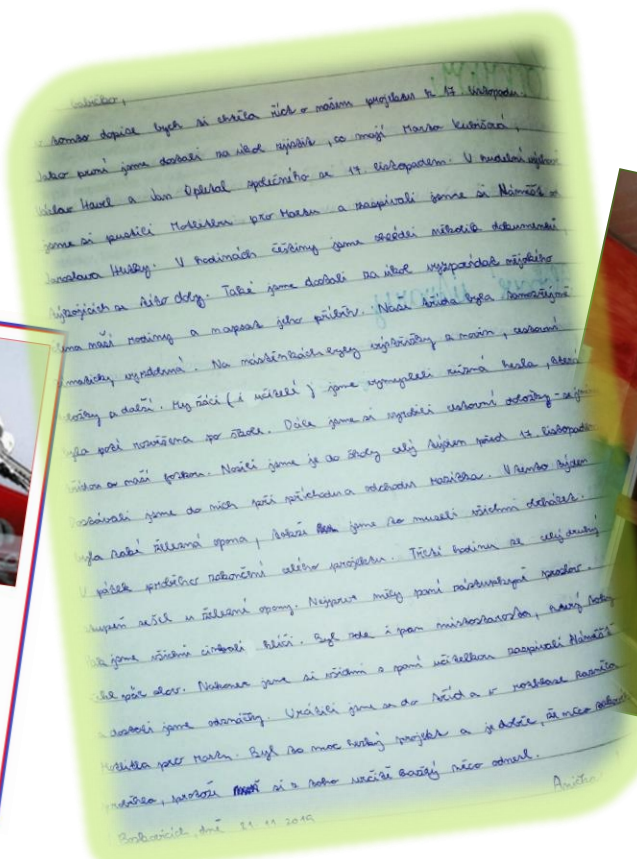 babičko,
tomto dopise bych si chtěla říct o našem projektu k 17. listopadu.
Jako první jsme dostali za úkol zjistit, co mají Marta Kubišová,
Václav Havel a Jan Opletal společného se 17. listopadem. V hudební výchově
jsme si pustili Motlitbu pro Martu a zazpívali jsme si Náměšť od
Jaroslava Hutky. V hodinách češtiny jsme shlédli několik dokumentů,
týkajících se této doby. Také jsme dostali za úkol vyzpovídat nějakého
člena naší rodiny a napsat jeho příběh. Naše třída byla samozřejmě
tematicky vyzdobená. Na nástěnkách byly výstřižky z novin, cestovní
doložky a další. My žáci (i učitelé) jsme vymysleli různá hesla, která
byla poté rozvěšena po škole. Dále jsme si vyrobili cestovní doložky - se jménem,
třídou a naší fotkou. Nosili jsme je do školy celý týden před 17. listopadem.
Dostávali jsme do nich při příchodu a odchodu razítka. V tento týden
byla také železná opona, takže jsme to museli všichni obcházet.
V pátek proběhlo zakončení celého projektu. Třetí hodinu se celý druhý
stupeň sešel u železné opony. Nejprve měly paní zástupkyně proslov.
Pak jsme všichni cinkali klíči. Byl zde i pan místostarosta, který taky
řekl pár slov. Nakonec jsme si všichni s paní učitelkou zazpívali Náměšť
a dostali jsme odznáčky. Vrátili jsme se do tříd a v rozhlase zazněla
Motlitba pro Martu. Byl to moc hezký projekt a je dobře, že něco takového
proběhlo, protože si z toho určitě každý něco odnesl.
Anička
Boskovicích, dne 21. 11. 2019